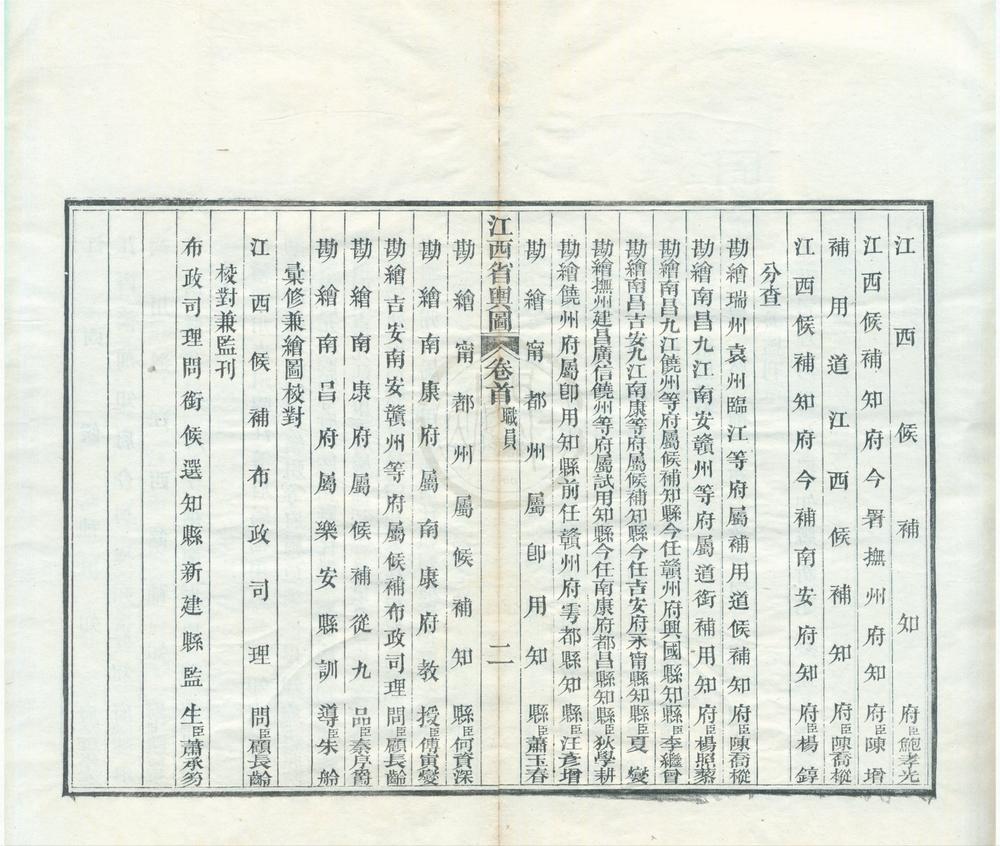 江西候補知府臣鮑孝光
江西候補知府今署撫州府知府臣陳增
補用道江西候補知府臣陳喬樅
江西候補知府今補南安府知府臣楊錞
分查
勘繪瑞州袁州臨江等府屬補用道候補知府臣陳喬樅
勘繪南昌九江南安贛州等府屬道銜補用知府臣楊照藜
勘繪南昌九江饒州等府屬候補知縣今任贛州府興國縣知縣臣李繼曾
勘繪南昌吉安九江南康等府屬候補知縣今任吉安府永甯縣知縣臣夏燮
勘繪撫州建昌廣信饒州等府屬試用知縣今任南康府都昌縣知縣臣狄學耕
勘繪饒州府屬卽用知縣前任贛州府雩都縣知縣臣汪彥增
勘繪甯都州屬卽用知縣臣蕭玉春
江西省輿圖 卷首 職員 二
勘繪甯都州屬候補知縣臣何資深
勘繪南康府屬南康府教授臣傅寅燮
勘繪吉安南安贛州等府屬候補布政司理問臣顧長齡
勘繪南康府屬候補從九品臣秦厚爵
勘繪南昌府屬樂安縣訓導臣朱舲
彙修兼繪圖校對
江西候補布政司理問臣顧長齡
校對兼監刊
布政司理問銜候選知縣新建縣監生臣蕭承豹